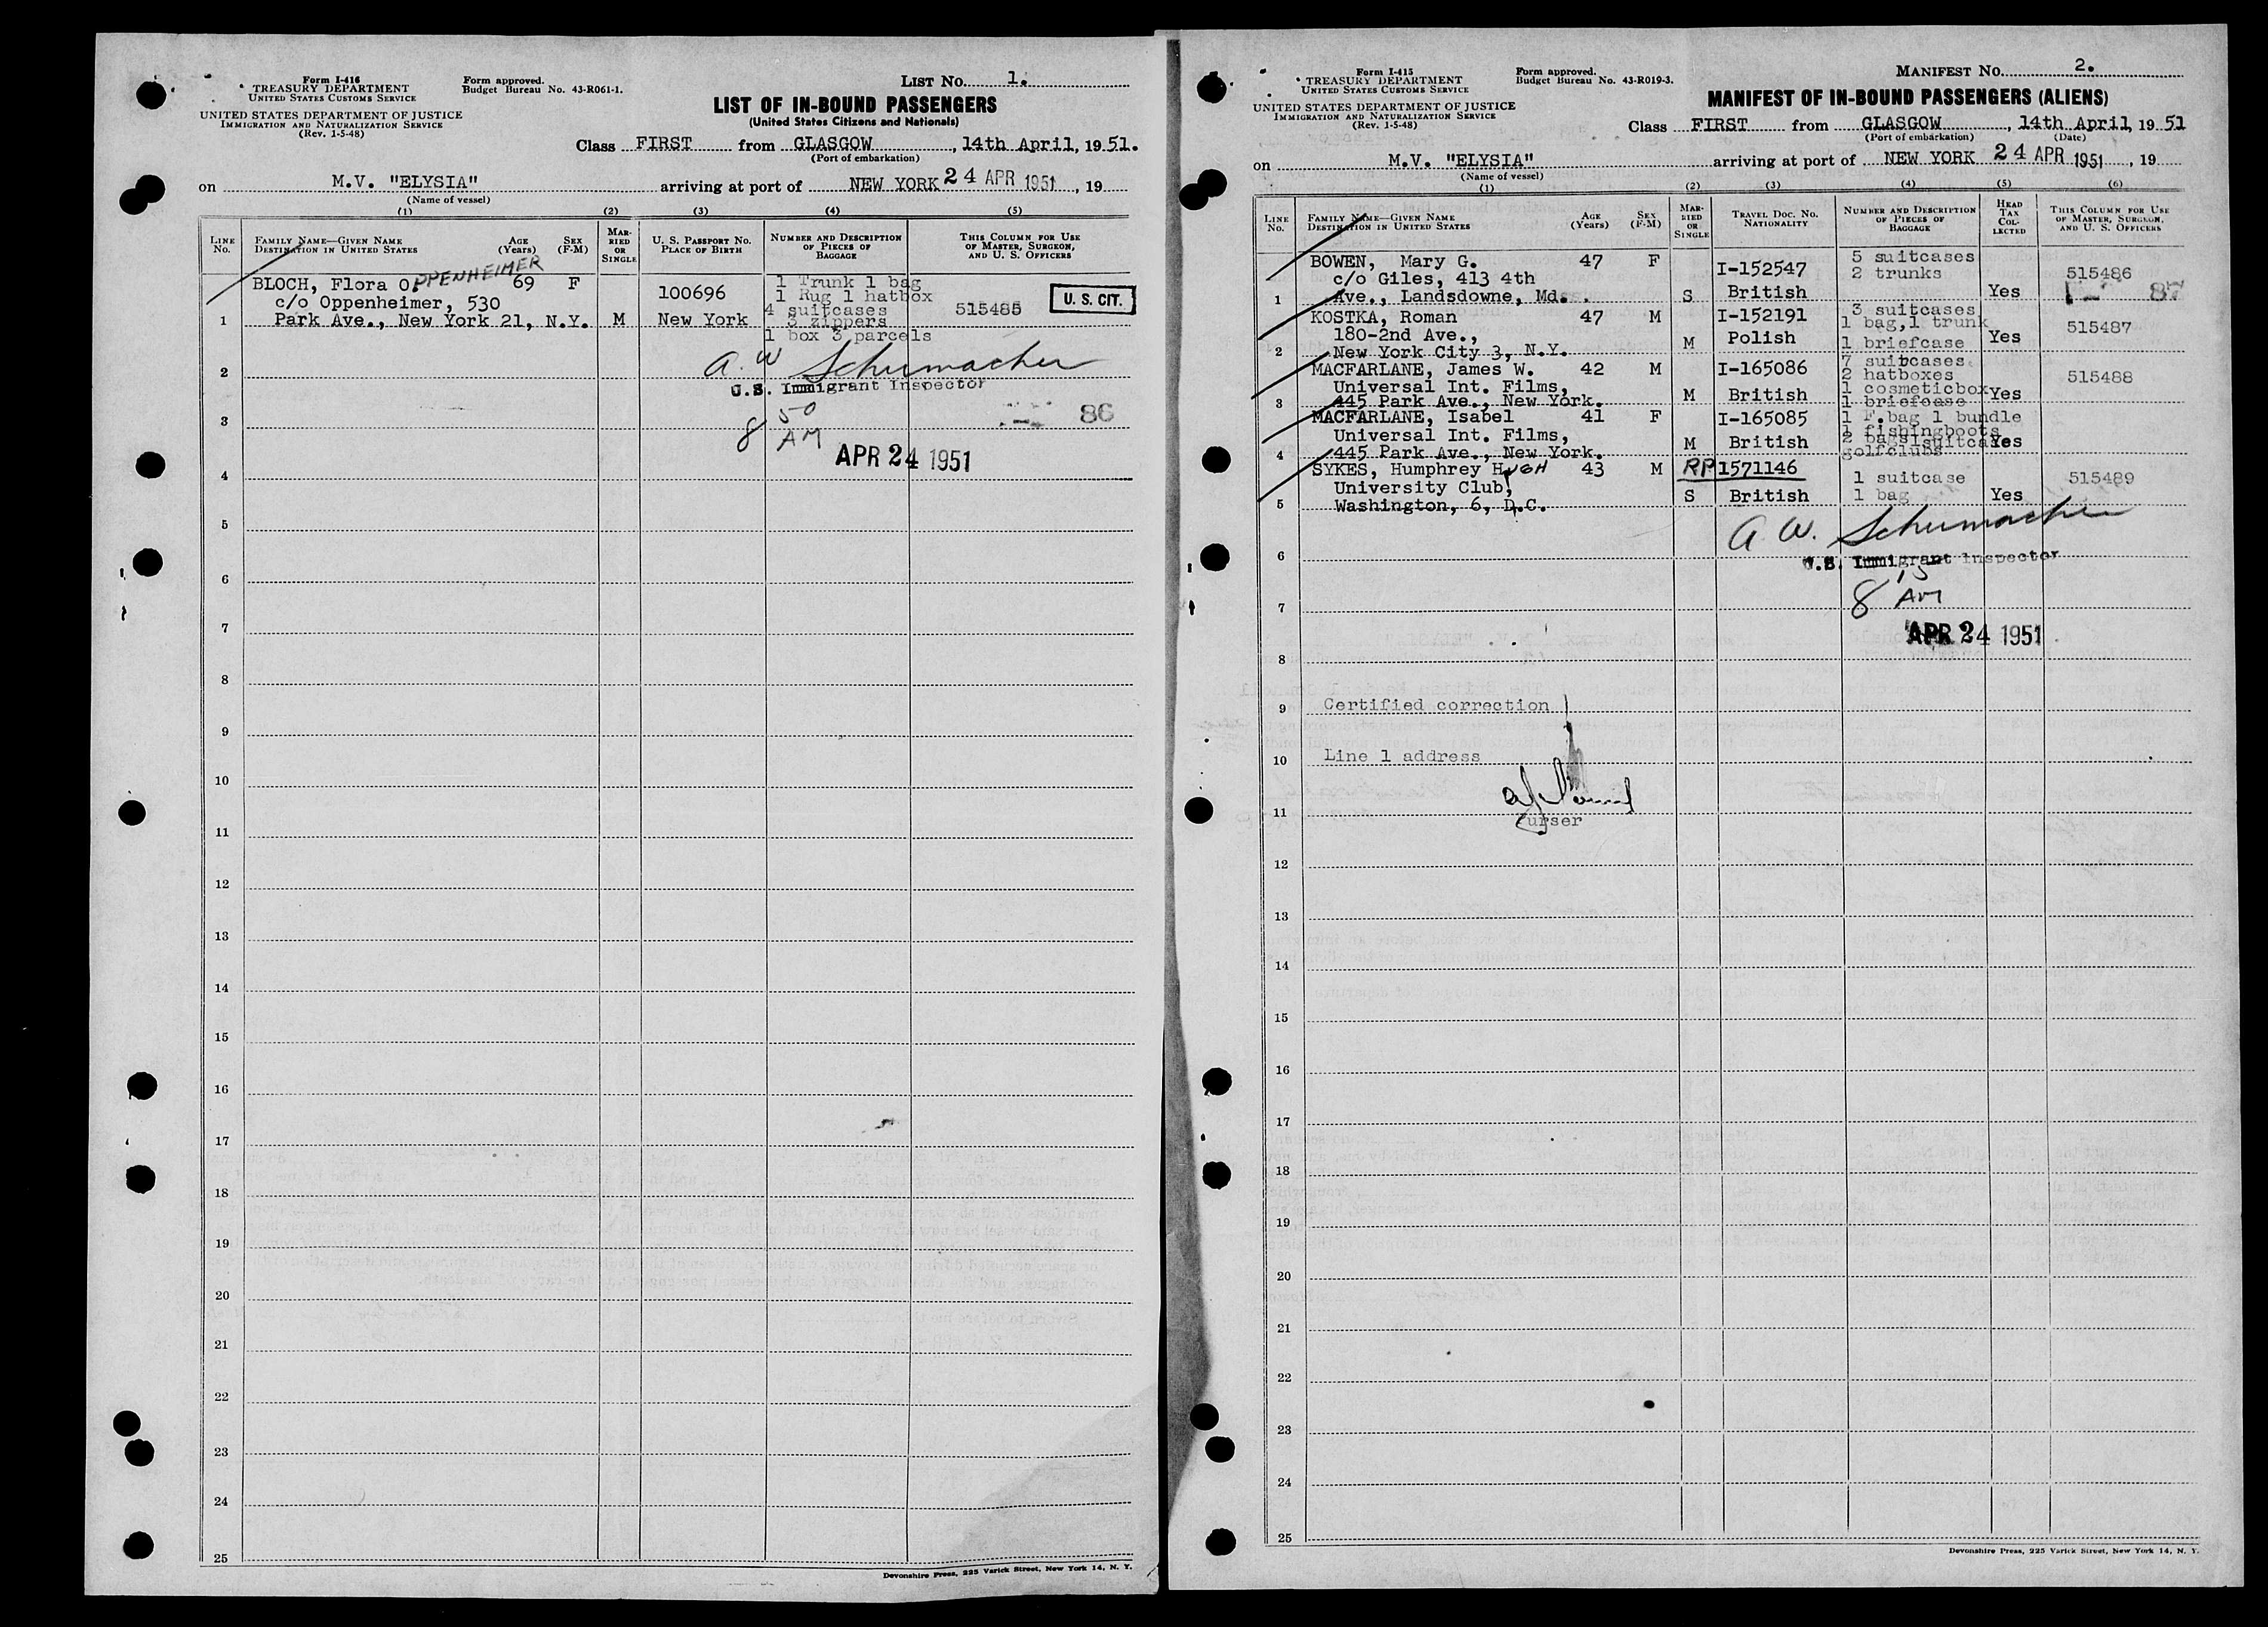 Form I-416
TREASURY DEPARTMENT
UNITED STATES CUSTOMS SERVICE
UNITED STATES DEPARTMENT OF JUSTICE
IMMIGRATION AND NATURALIZATION SERVICE
(Rev. 1-5-48)
Form approved.
Budget Bureau No. 43-R061-1.
LIST No. 1.
LIST OF IN-BOUND PASSENGERS
(United States Citizens and Nationals)
Class FIRST from GLASGOW, 14th April, 1951.
(Port of embarkation)
on M.V. "ELYSIA" arriving at port of NEW YORK 24 APR 1951, 19
(Name of vessel)
(1) (2) (3) (4) (5)
LINE No.
FAMILY NAME—GIVEN NAME
DESTINATION IN UNITED STATES
AGE (Years)
SEX (F-M)
MARRIED OR SINGLE
U. S. PASSPORT NO.
PLACE OF BIRTH
NUMBER AND DESCRIPTION OF PIECES OF BAGGAGE
THIS COLUMN FOR USE OF MASTER, SURGEON, AND U. S. OFFICERS
BLOCH, Flora O.PPENHEIMER 69 F
c/o Oppenheimer, 530
1 Park Ave., New York 21, N.Y. M
100696
New York
1 Trunk 1 bag
1 Rug 1 hatbox
4 suitcases
3 zippers
1 box 3 parcels
515485
U. S. CIT.
2
A. W Schumacher
U.S. Immigrant Inspector
3
86
8 50 AM
APR 24 1951
4
5
6
7
8
9
10
11
12
13
14
15
16
17
18
19
20
21
22
23
24
25
Devonshire Press, 225 Varick Street, New York 14, N. Y.
Form I-415
TREASURY DEPARTMENT
UNITED STATES CUSTOMS SERVICE
UNITED STATES DEPARTMENT OF JUSTICE
IMMIGRATION AND NATURALIZATION SERVICE
(Rev. 1-5-48)
Form approved.
Budget Bureau No. 43-R019-3.
MANIFEST No. 2.
MANIFEST OF IN-BOUND PASSENGERS (ALIENS)
Class FIRST from GLASGOW, 14th April, 1951
(Port of embarkation) (Date)
on M.V. "ELYSIA" arriving at port of NEW YORK 24 APR 1951, 19
(Name of vessel)
(1) (2) (3) (4) (5) (6)
LINE No.
FAMILY NAME—GIVEN NAME
DESTINATION IN UNITED STATES
AGE (Years)
SEX (F-M)
MARRIED OR SINGLE
TRAVEL DOC. NO.
NATIONALITY
NUMBER AND DESCRIPTION OF PIECES OF BAGGAGE
HEAD TAX COLLECTED
THIS COLUMN FOR USE OF MASTER, SURGEON, AND U. S. OFFICERS
BOWEN, Mary G. 47 F
c/o Giles, 413 4th
1 Ave., Landsdowne, Md. S
I-152547
British
5 suitcases
2 trunks
Yes
515486
87
KOSTKA, Roman 47 M
180-2nd Ave.,
2 New York City 3, N.Y. M
I-152191
Polish
3 suitcases
1 bag,1 trunk
1 briefcase
Yes
515487
MACFARLANE, James W. 42 M
Universal Int. Films,
3 445 Park Ave., New York. M
I-165086
British
7 suitcases
2 hatboxes
1 cosmeticbox
1 briefcase
Yes
515488
MACFARLANE, Isabel 41 F
Universal Int. Films,
4 445 Park Ave., New York. M
I-165085
British
1 F.bag 1 bundle
1 fishingboots
2 bags1suitcase
golfclubs
Yes
SYKES, Humphrey HUGH 43 M
University Club,
5 Washington, 6, D.C. S
RP 1571146
British
1 suitcase
1 bag
Yes
515489
A. W. Schumacher
6
U.S. Immigrant Inspector
8 15 AM
7
APR 24 1951
8
9 Certified correction
10 Line 1 address
11
Purser
12
13
14
15
16
17
18
19
20
21
22
23
24
25
Devonshire Press, 225 Varick Street, New York 14, N. Y.